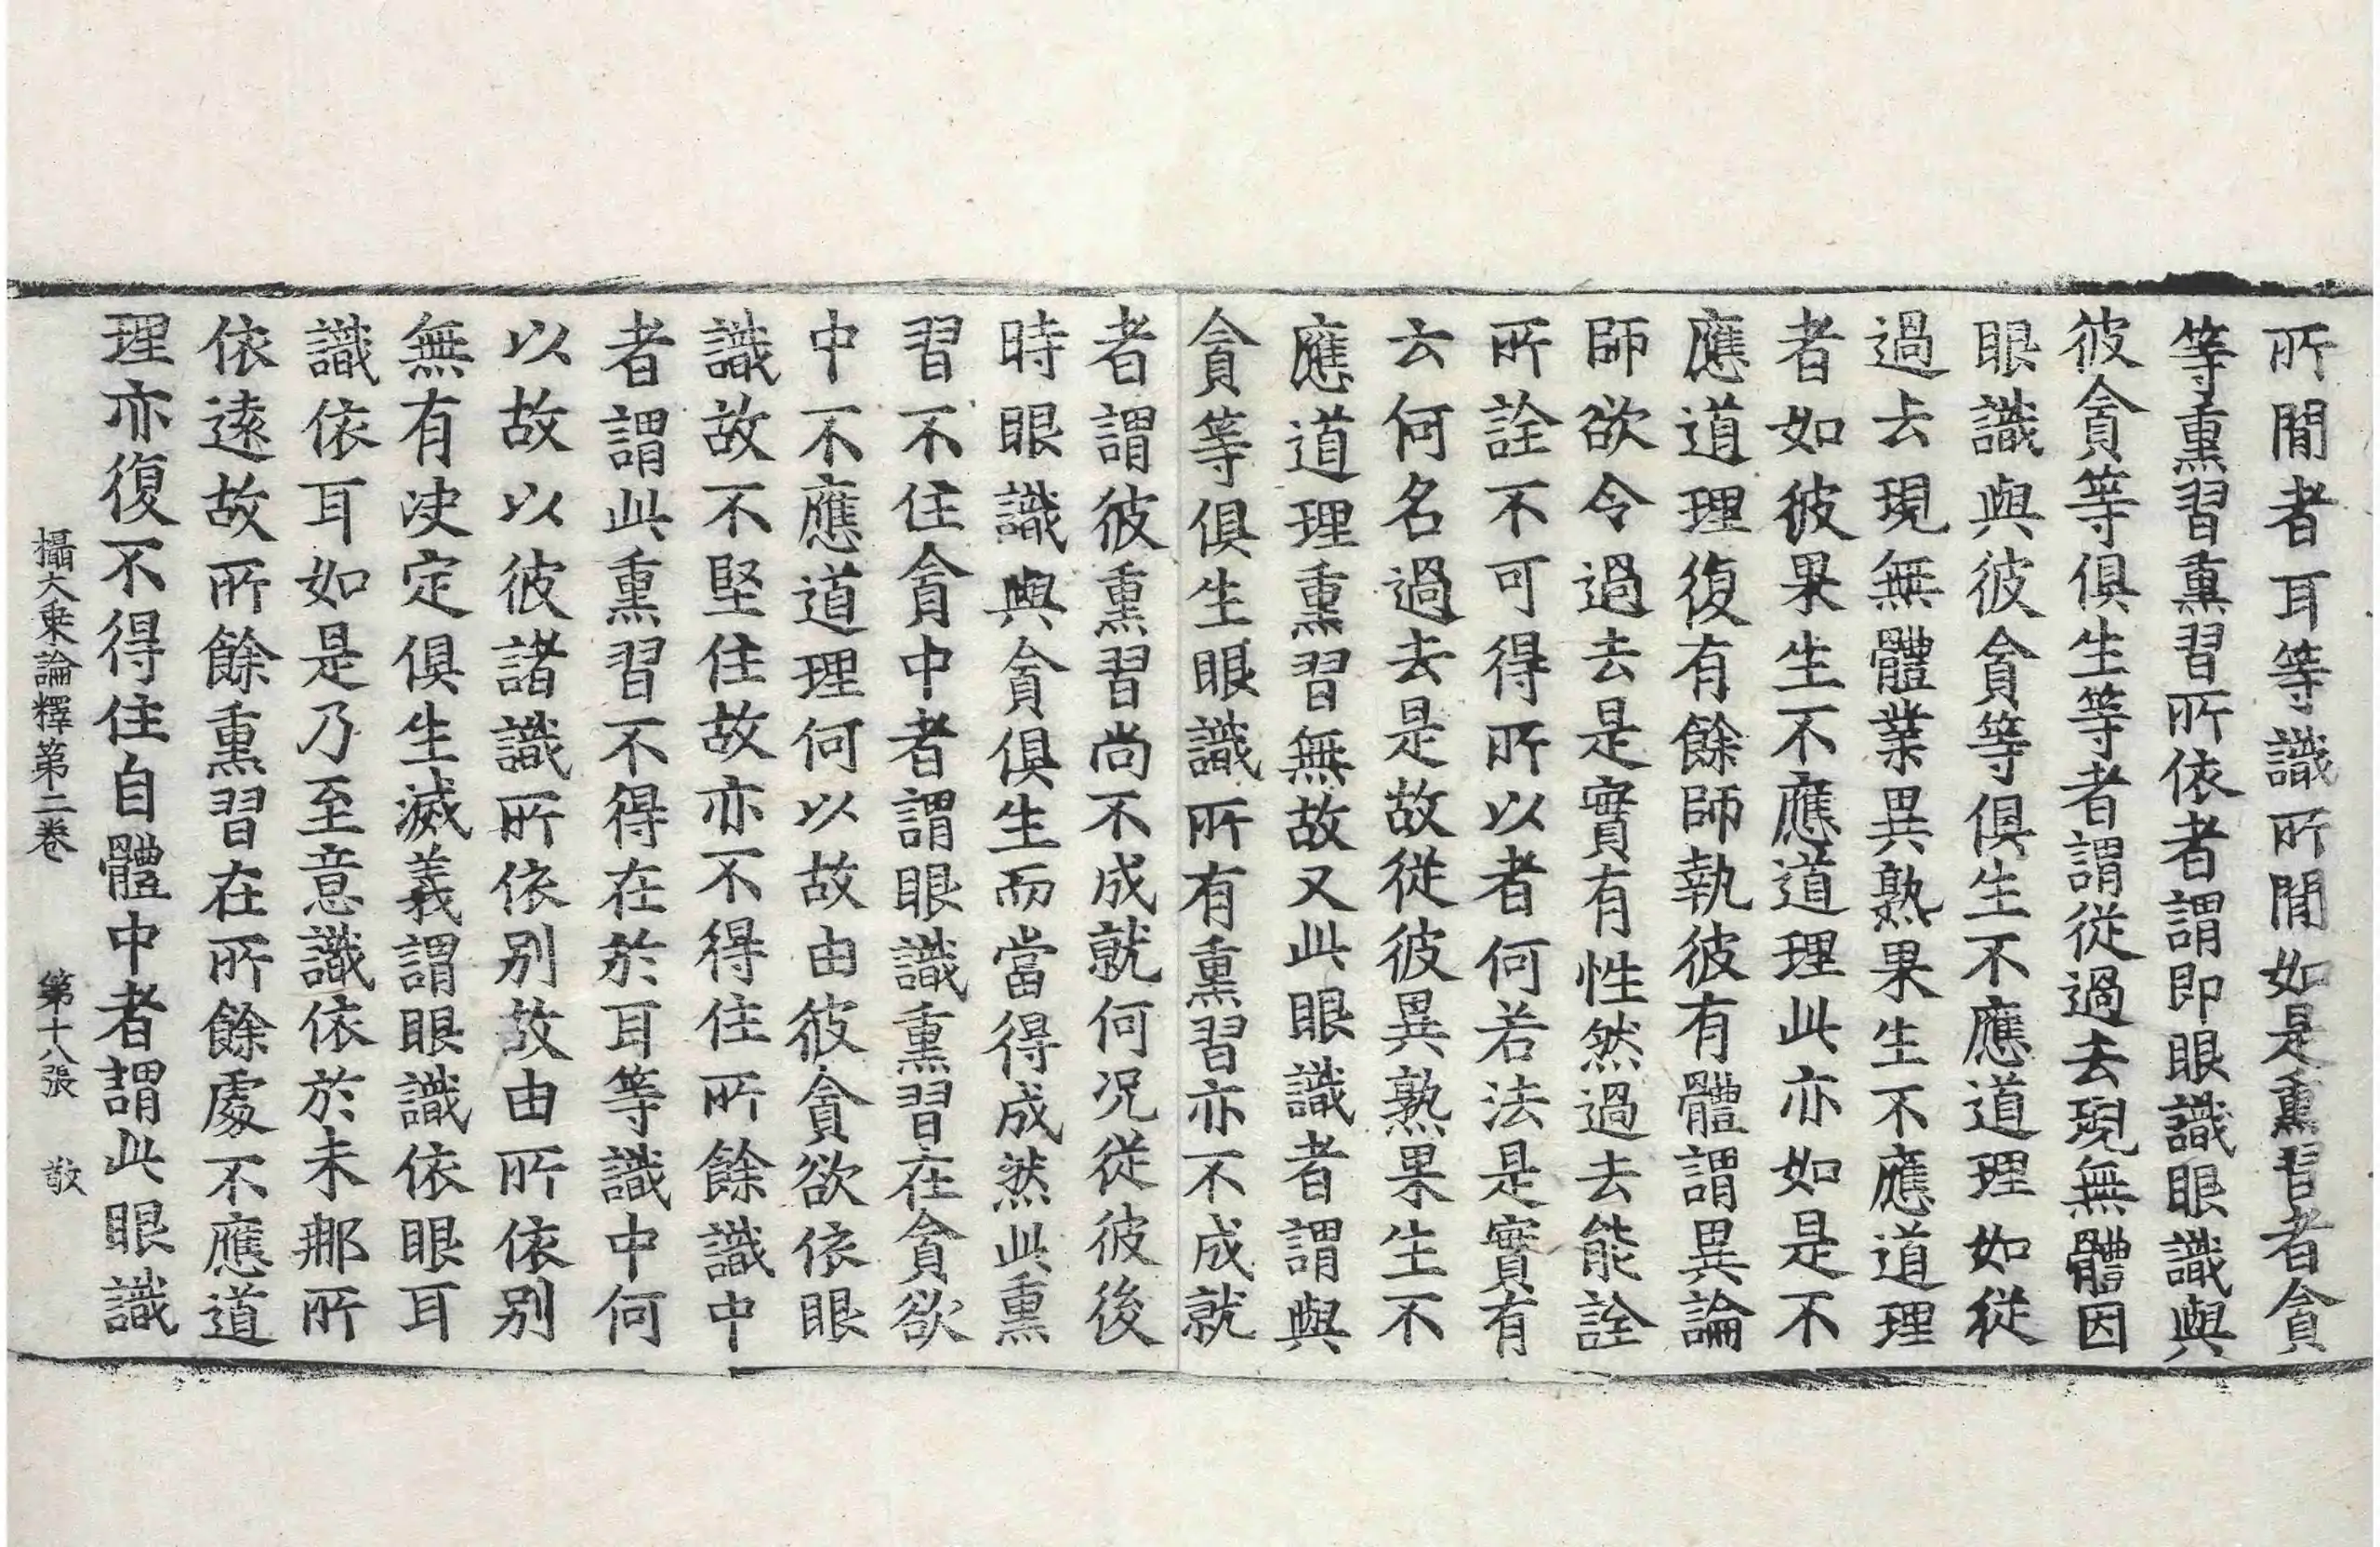 所間者耳等識所間如是熏習者貪
等熏習熏習所依者謂即眼識眼識與
彼貪等俱生等者謂從過去現無體因
眼識與彼貪等俱生不應道理如從
過去現無體業異熟果生不應道理
者如彼果生不應道理此亦如是不
應道理復有餘師執彼有體謂異論
師欲令過去是實有性然過去能詮
所詮不可得所以者何若法是實有
云何名過去是故從彼異熟果生不
應道理熏習無故又此眼識者謂與
貪等俱生眼識所有熏習亦不成就
者謂彼熏習尚不成就何况從彼後
時眼識與貪俱生而當得成然此熏
習不住貪中者謂眼識熏習在貪欲
中不應道理何以故由彼貪欲依眼
識故不堅住故亦不得住所餘識中
者謂此熏習不得在於耳等識中何
以故以彼諸識所依別故由所依別
無有决定俱生滅義謂眼識依眼耳
識依耳如是乃至意識依於末那所
依遠故所餘熏習在所餘處不應道
理亦復不得住自體中者謂此眼識
攝大乘論釋第二卷 第十八張 敬